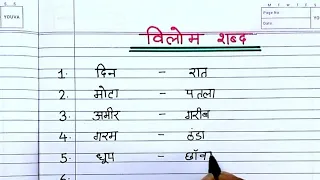 YOUVA
विलोम शब्द
1. दिन - रात
2. मोटा - पतला
3. अमीर - गरीब
4. गरम - ठंडा
5. धूप - छाँव
6.
Page No
YOUVA